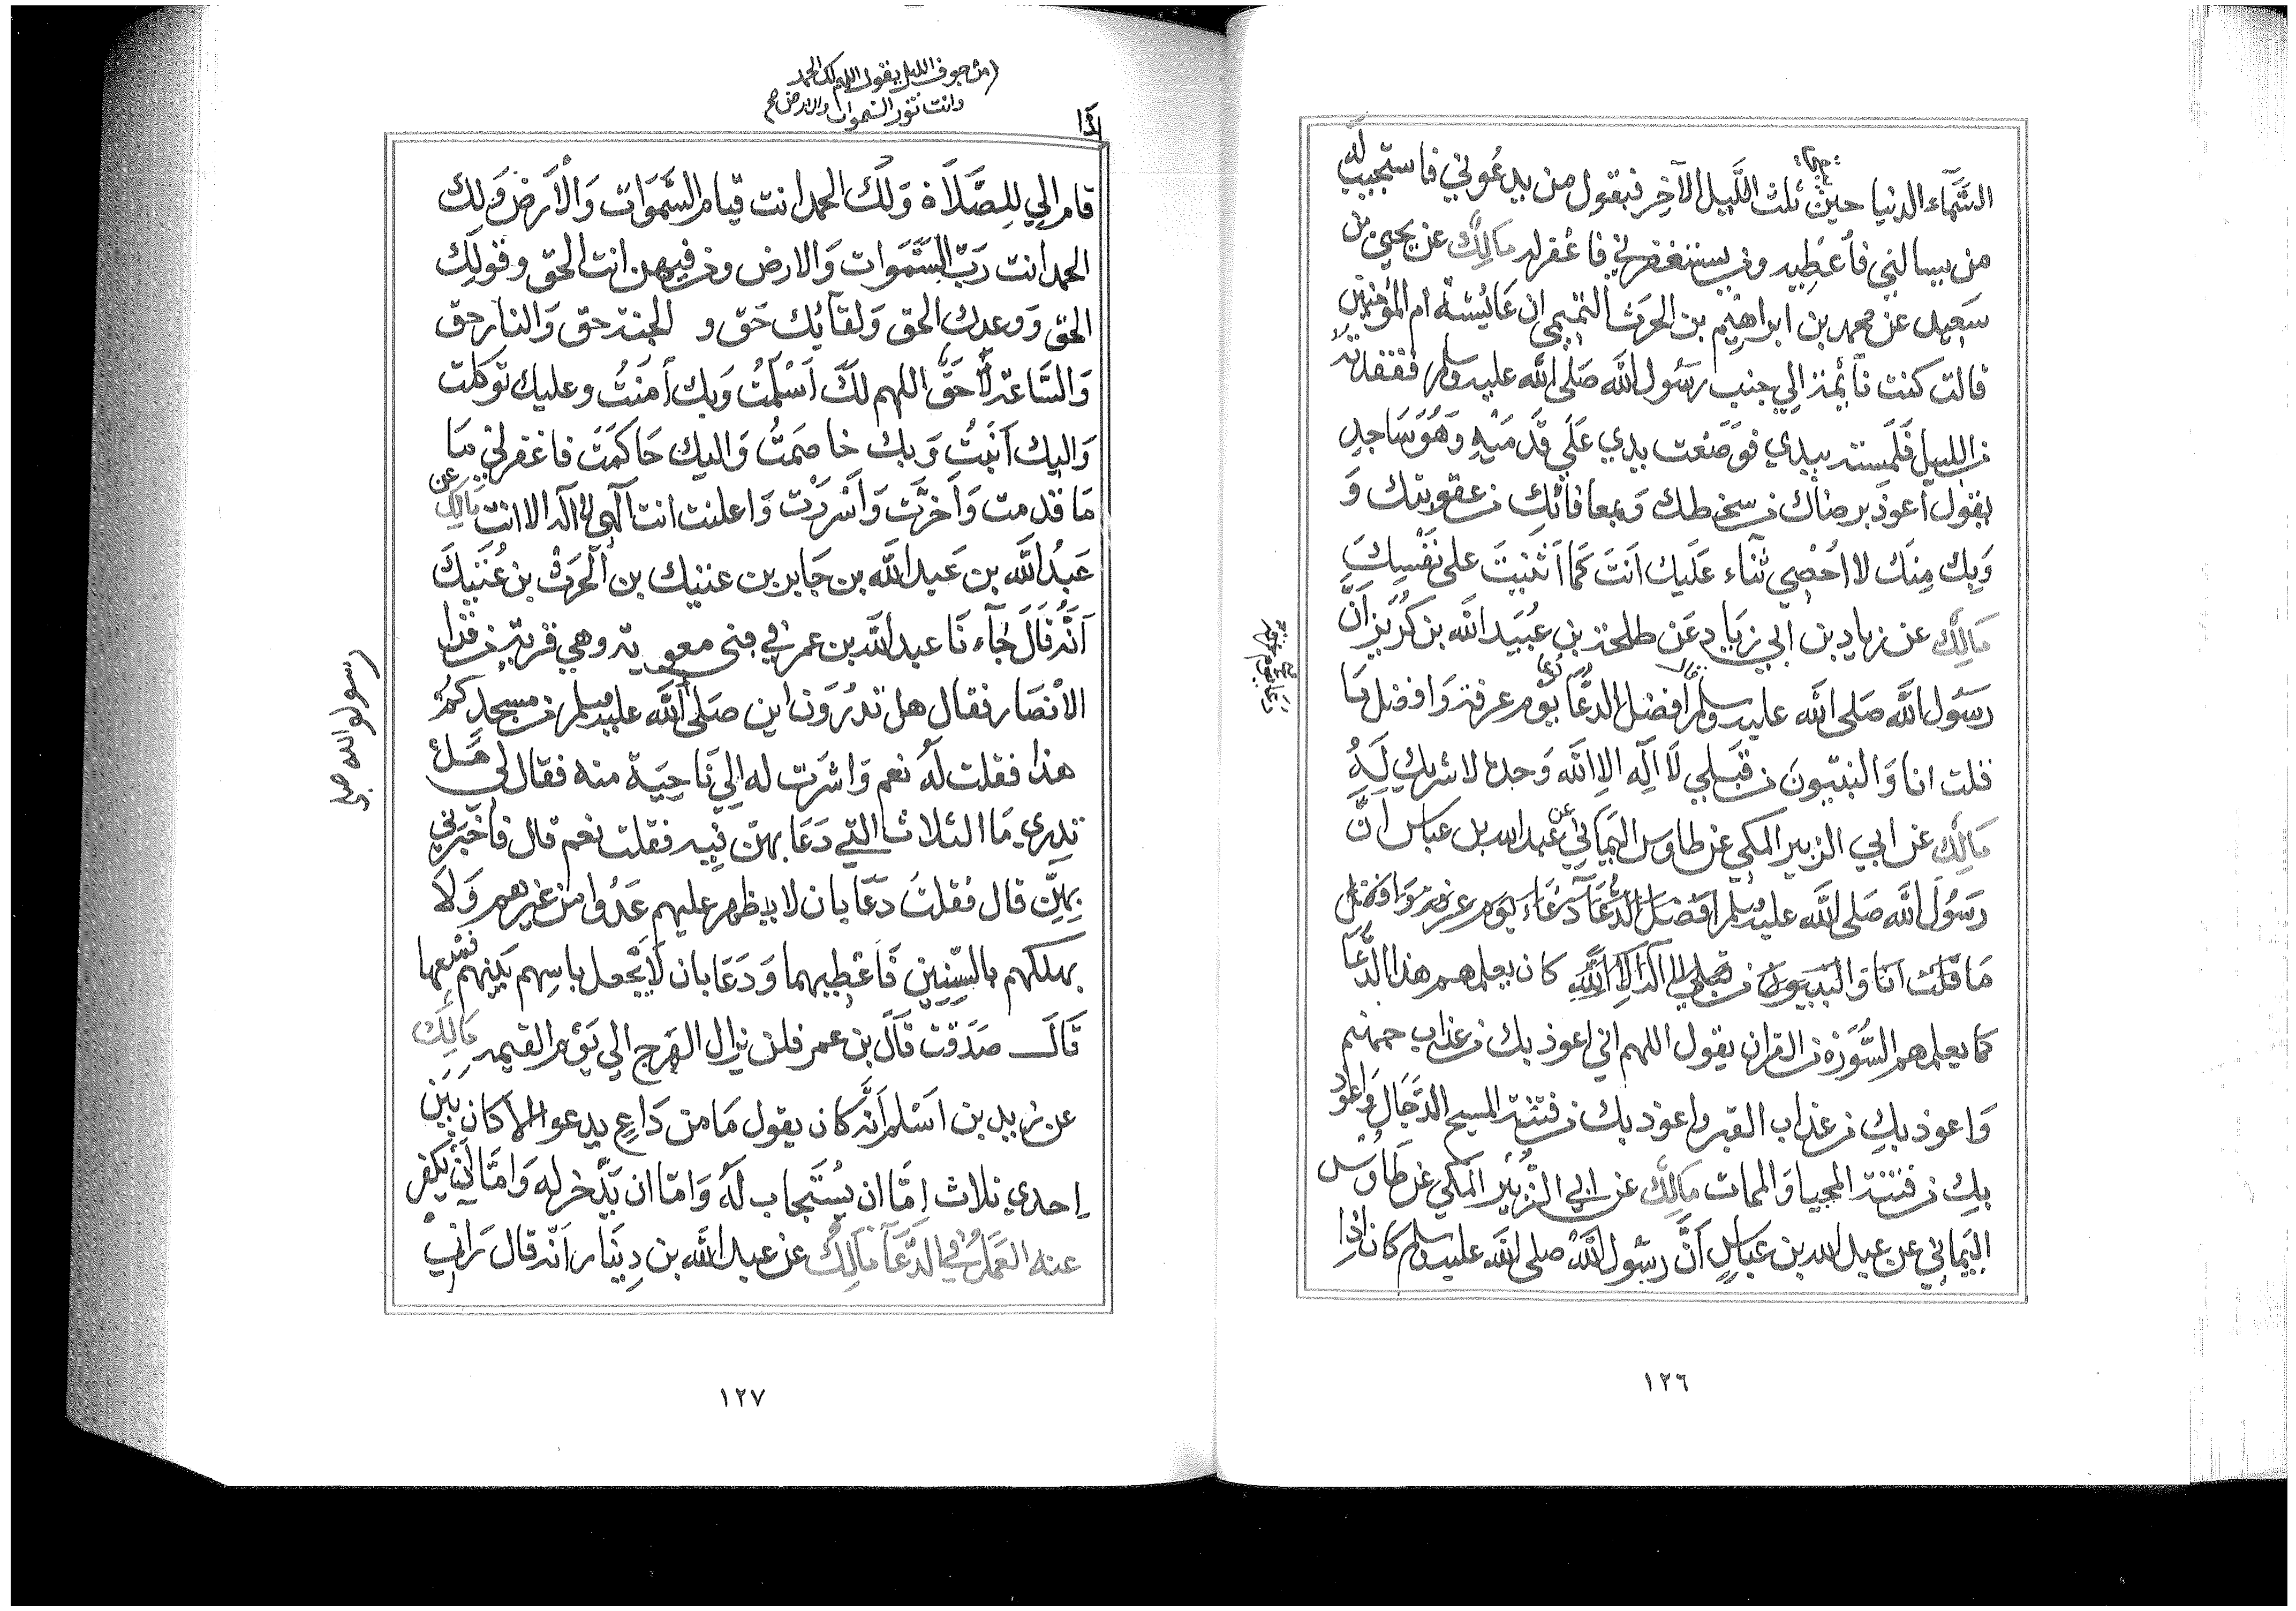 السَّمَاء الدنيا حين ثلث اللَّيل الآخِر فيقول من يدعُوني فاستجيب له
من يسالني فأعطيه ومن يستغفرني فاغفرله مَالِك عن يحيى بن
سَعيد عن محمد بن ابراهيم بن الحرث التيمي ان عَايُشة ام المؤمنين
قالت كنت نَائمة الي جنب رسُول الله صَلى الله عليه وسلم ففقدته
من الليل فلمسته بيدي فوَضعت يدي عَلَي قدمَيْه وَهُوَ سَاجد
يقول أعوذ برضاك من سخطك وَبمعافاتك من عقوبتك وَ
وَبِك مِنَك لا اُحْصِي ثنَاء عَلَيك اَنتَ كَمَا اَثنيتَ على نَفْسِكَ
مَالِك عن زياد بن ابي زيَاد عَن طلحة بن عُبَيد الله بن كُرَيزانَّ
رَسُول الله صَلى الله عليه وسلم قال افضل الدُّعَا دعا يوم عرفة وَافضل مَا
قلت انا وَالنبيّونَ من قبَلي لَا اَلَه الا الله وَحده لا شريك لَه
مَالِك عن ابي الزبير المكي عن طاوس اليَمَاني عن عبد الله بن عباس انَّ
رَسُولَ الله صَلى الله عليه وسلم افضَل الدُّعَا دُعَاء يوم عرفة وَافضل
مَا قلت اَنا وَالنبيون من قبلي لا اله الا الله كان يعلمهم هذا الدُّعَا
كما يعلمهم السُّوَرة من القران يقول اللهم اني اعوذ بك من عذاب جهنم
وَاعوذ بك من عذاب القبر واعوذ بك من فتنة المسيح الدَّجَال وَاعوذ
بك من فتنة المحيا وَالممات مَالِك عن ابي الزُّبَير المكي عن طَاوُس
اليَماني عن عبد الله بن عَبَاسٍ اَنَّ رسُول اللهُ صلى الله عليه وسلم كان اذا
١٢٦
(من جوف الليل يقول اللهم لك الحمد
وانت نُور السَموات والارض صح
اذَا
قام الي لِلصَّلَاة وَلَكَ الحمد انت قيام السَّمَوَات وَالْاَرض وَلك
الحمد انت رَبّ السَّمَوَات وَالارض ومن فيهن انت الحق وقولك
الحق وَوعدك الحق وَلقَائك حَق و الجنة حق وَالنار حق
وَالسَّاعة حَقُّ اللهم لكَ اَسْلَمْتُ وَبك اٰمَنْتُ وعليك توكلت
وَاليك اَنَبْتُ وَبك خاصَمتُ وَاليك حَاكَمَتُ فاغفرلي مَا
مَا قدمت وَاَخّرَت وَاَسْرَرْت وَاعلنت انت اَلهي لا اله الا انت مَالِك عن
عَبْدُ الله بن عَبد الله بن جَابر بن عتيك بن الحَرث بن عُتَيك
اَنَّهُ قَالَ جَآءنَا عبد الله بن عمر في بني معوية وهي قرية من قرا
الاَنْصَار فقال هل تدْرُونَ اين صَلى الله عليه وسلم من مسجدكم
رسول الله صلى
هذا فقلت لَهُ نعم وَاشرَت له اِلي نَاحِيَة منه فقال لي هَل
تدري مَا الثلاث التي دَعَا بهنّ فيه فقلت نعم قال فاَخبرني
بهِنّ قال فقلت دَعَا بان لا يظهر عليهم عَدُوا من غيرهم وَلَا
يهلكهم بالسِّنِين فَاُعطيهما وَدَعَا بان لَا يَجعل باسهم بَينهم فمنعها
قَالَ صَدَقت قَالَ بن عمر فلن يزال الهَرج الي يَوْم القيمه مَالِك
عن زيد بن اَسْلم اَنَّه كان يقول مَا من دَاعٍ يدعو الا كان بَيْن
اِحدي ثلاث اِمَّا ان يُسْتَجاب لَهُ وَامّا ان يَدّخر له وَامَّا اَن يكفر
عنه العَمَل في الدُّعَآ مَالِك عن عبد الله بن دِينَار اَنّه قال رَاني
١٢٧